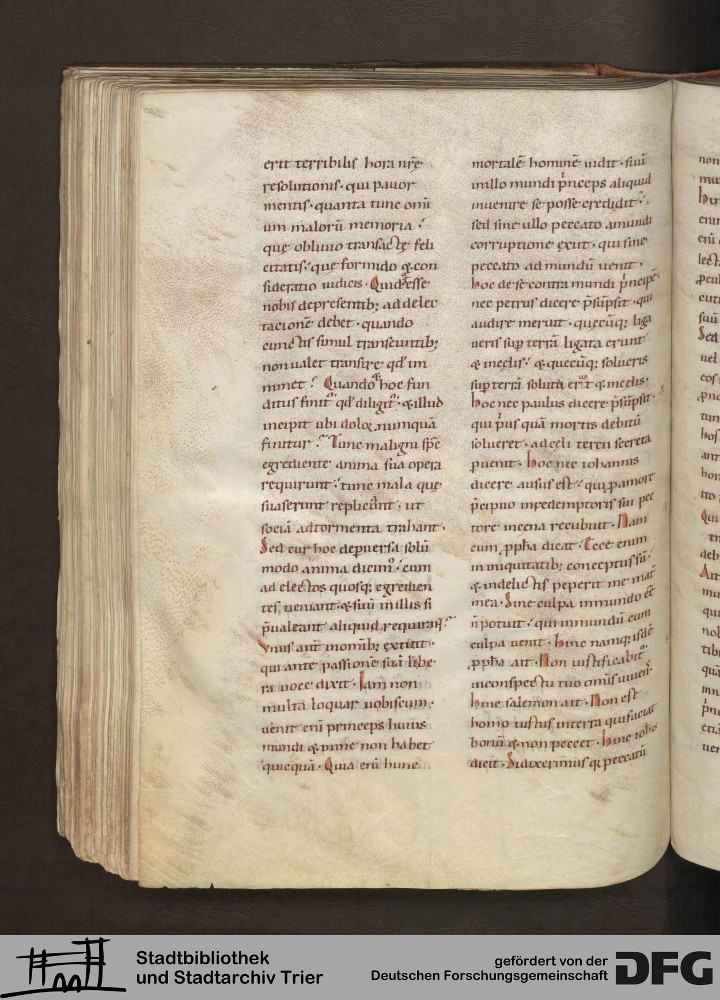 erit terribilis hora nr̄e
resolutionis· qui pauor
mentis· quanta tunc om̄i
um malorū memoria·
que obliuio transactę feli
citatis· que formido & con
sideratio iudicis· Quid esse
nobis de presentib; ad delec
tacionē debet· quando
cunctis simul transeuntib;
non ualet transire qd̄ im
minet? Quando & hoc fun
ditus finit̄ qd̄ diligit̄· & illud
incipit ubi dolor numquā
finitur· Tunc maligni sp̄c
egrediente anima sua opera
requirunt· tunc mala que
suaserunt replicant· ut
sociā ad tormenta trahant·
Sed cur hoc de peruersa solū
modo anima dicim᷒· cum
ad electos quosq; egredien
tes ueniant· & suū in illis si
p̄ualeant aliquid requirant·
Vnus aut̄ in omīb; extitit·
qui ante passionē suā libe
ra uoce dixit· Iam non
multa loquar uobiscum·
uenit eni princeps huius
mundi & in me non habet
quicquā· Quia eni hunc
mortalē hominē uidit· suū
in illo mundi p̄nceps aliquid
inuenire se posse credidit·
sed sine ullo peccato a mundi
corruptione exiit· qui sine
peccato ad mundū uenit·
hoc de se contra mundi p̄ncipē
nec petrus dicere p̄sūpsit· qui
audire meruit· quecūq; liga
ueris sup terrā ligata erunt
& in celis· & quecūq; solueris
sup terrā soluta erūt & in celis·
hoc nec paulus dicere p̄sūpsit·
qui p̄us quā mortis debitū
solueret· ad celi tercii secreta
puenit· hoc nec iohannis
dicere ausus est· qui p amore
p̄cipuo in redemptoris sui pec
tore in cena recubuit· Nam
cum ppha dicat· Ecce enim
in iniquitatib; conceptus sū·
& in delictis peperit me mat̄
mea· Sine culpa in mundo eē
n̄ potuit· qui in mundū cum
culpa uenit· hinc namq; isdē
ppha ait· Non iustificabit̄
in conspectu tuo omīs uiuen̄·
hinc salemon ait· Non est
homo iustus in terra qui faciat
bonū & non peccet· hinc iohīs
dicit· Si dixerimus q̄ peccatū
Stadtbibliothek
und Stadtarchiv Trier
gefördert von der
Deutschen Forschungsgemeinschaft
DFG